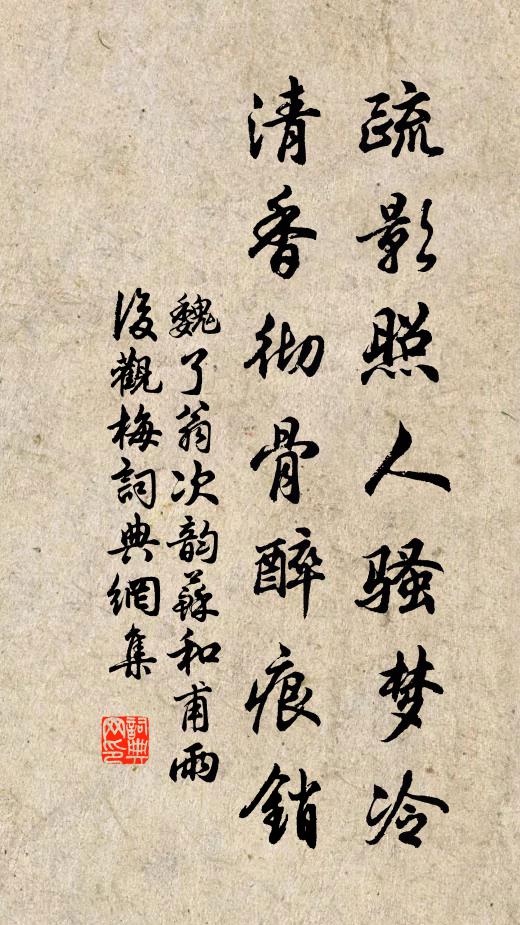 疏影照人骚梦冷
清香彻骨醉痕銷
魏了翁次韵蘇和甫雨
後觀梅詞典網集
詞典
网印